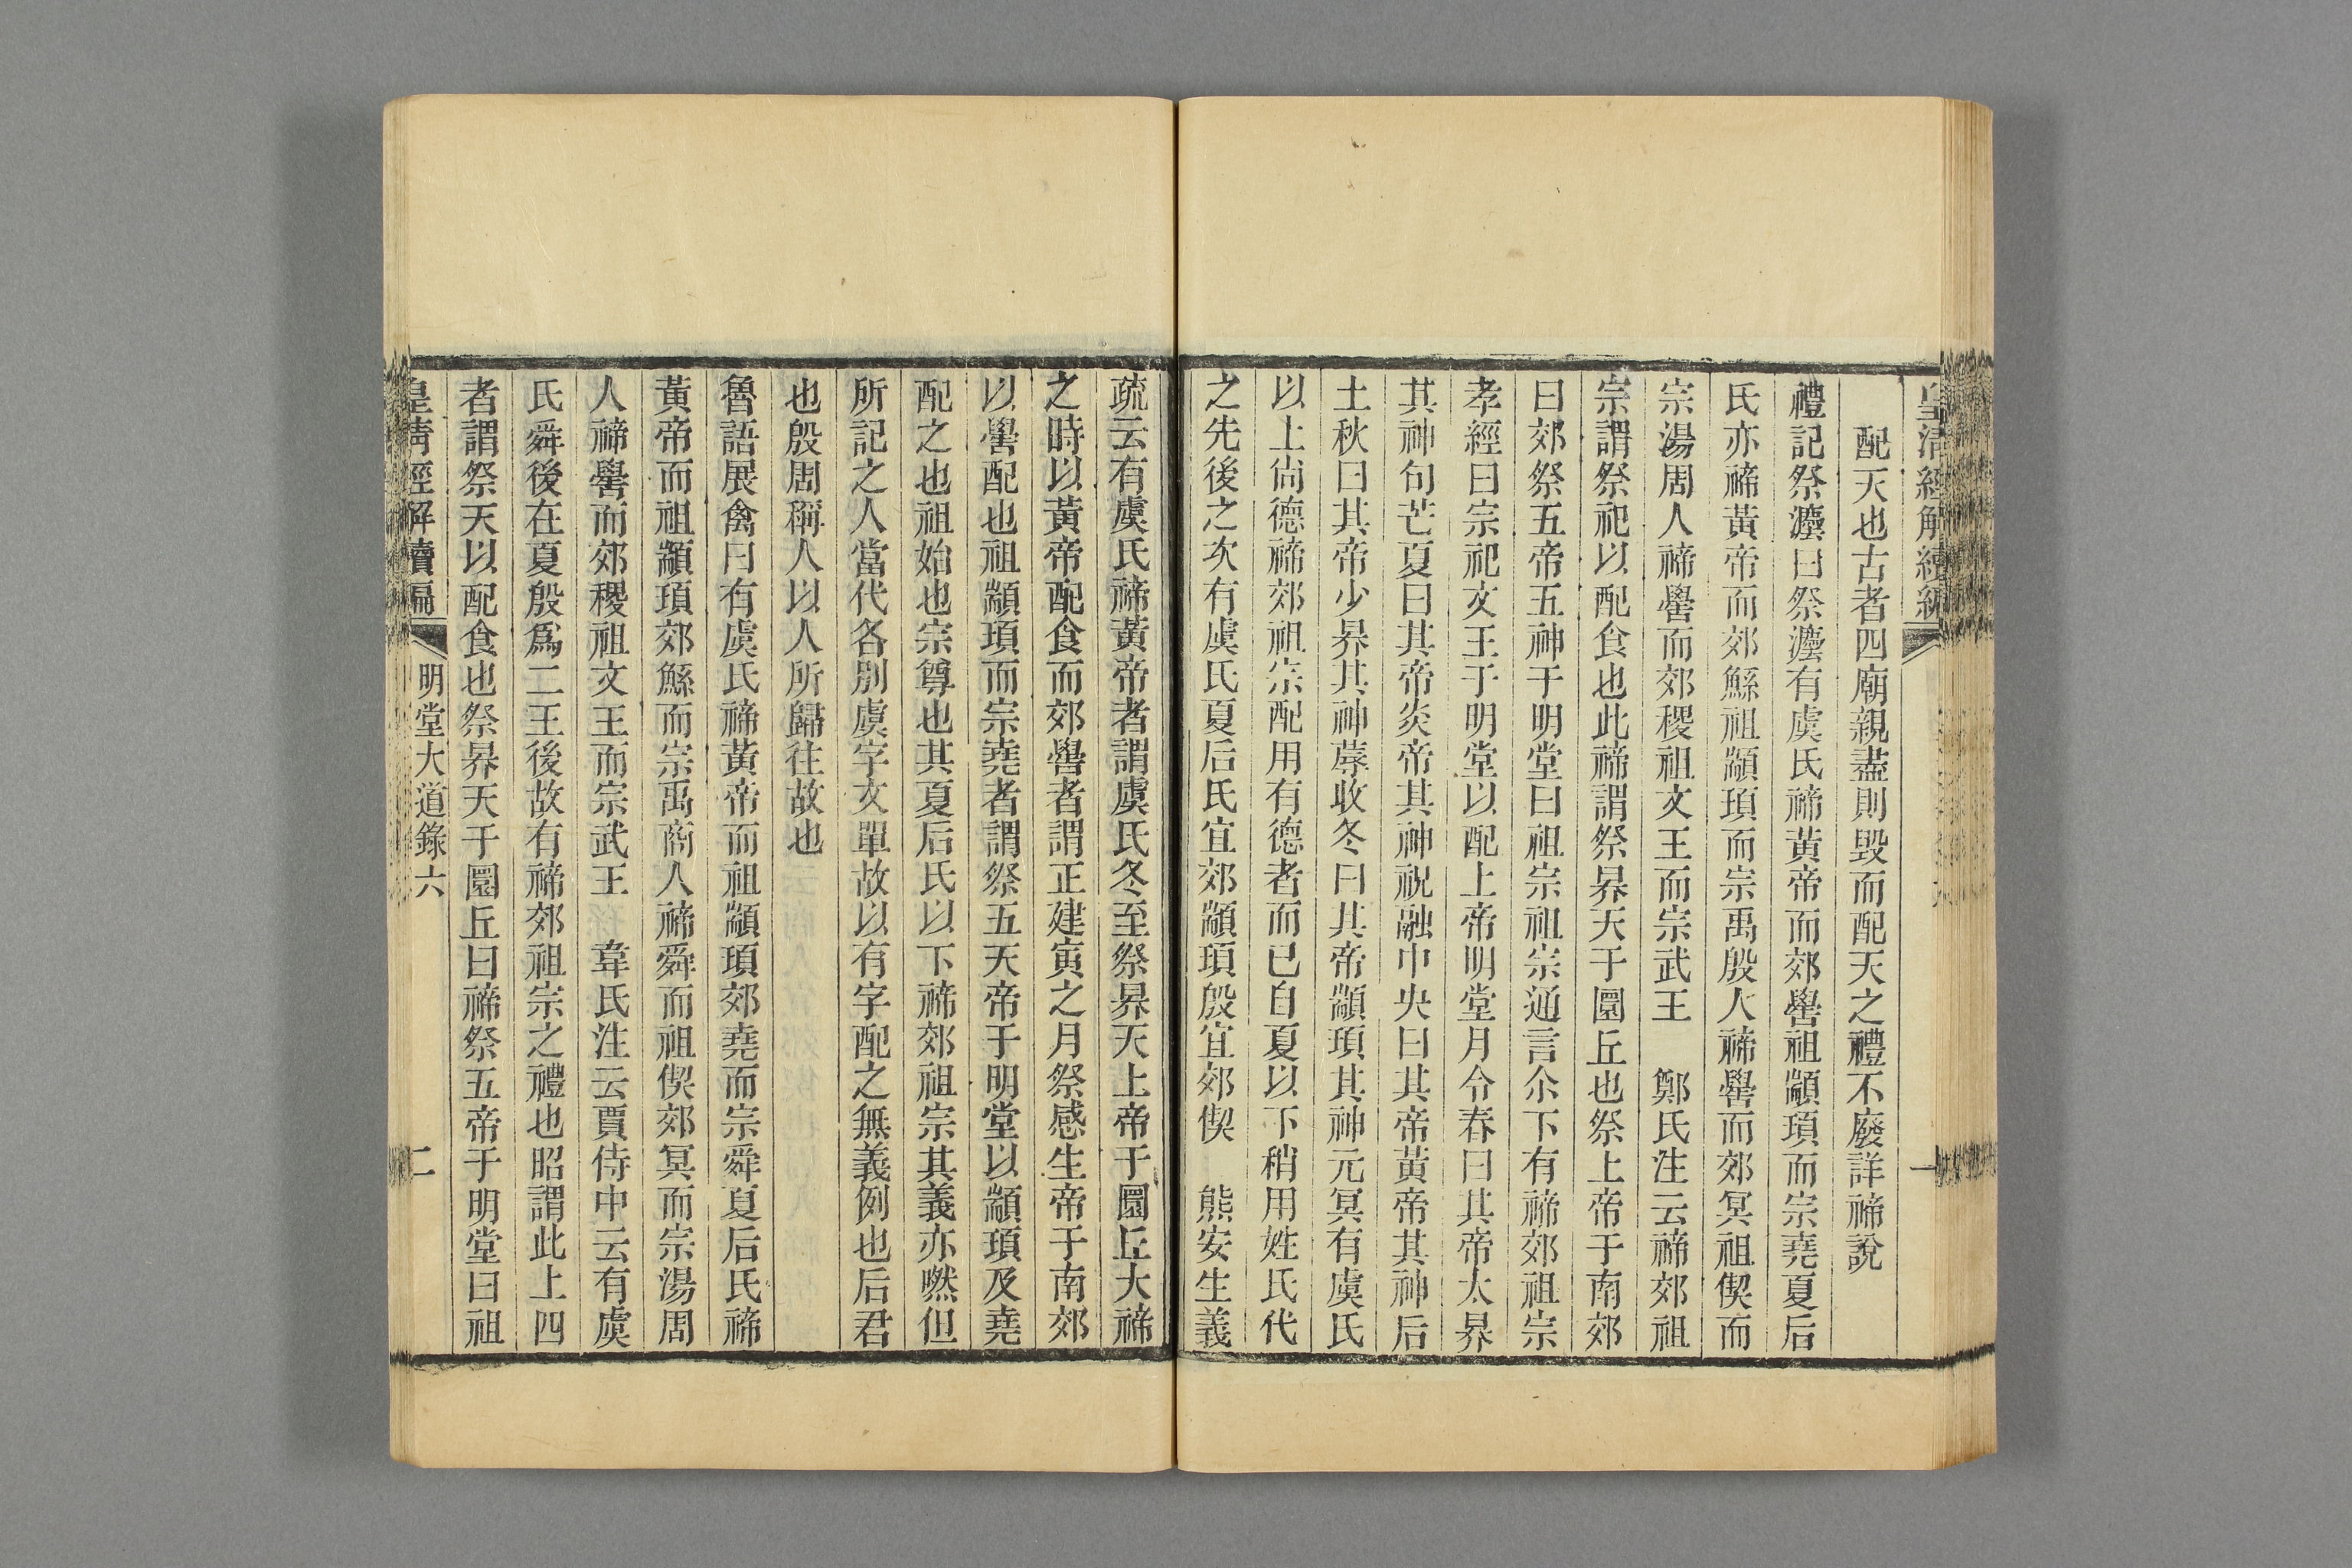 皇清經解續編
一
配天也古者四廟親盡則毀而配天之禮不廢詳禘說
禮記祭灋曰祭灋有虞氏禘黃帝而郊嚳祖顓頊而宗堯夏后
氏亦禘黃帝而郊鯀祖顓頊而宗禹殷人禘嚳而郊冥祖偰而
宗湯周人禘嚳而郊稷祖文王而宗武王　鄭氏注云禘郊祖
宗謂祭祀以配食也此禘謂祭昦天于圜丘也祭上帝于南郊
曰郊祭五帝五神于明堂曰祖宗祖宗通言尒下有禘郊祖宗
孝經曰宗祀文王于明堂以配上帝明堂月令春曰其帝太昦
其神句芒夏曰其帝炎帝其神祝融中央曰其帝黃帝其神后
土秋曰其帝少昦其神蓐收冬曰其帝顓頊其神元冥有虞氏
以上尚德禘郊祖宗配用有德者而已自夏以下稍用姓氏代
之先後之次有虞氏夏后氏宜郊顓頊殷宜郊偰　熊安生義
疏云有虞氏禘黃帝者謂虞氏冬至祭昦天上帝于圜丘大禘
之時以黃帝配食而郊嚳者謂正建寅之月祭感生帝于南郊
以嚳配也祖顓頊而宗堯者謂祭五天帝于明堂以顓頊及堯
配之也祖始也宗尊也其夏后氏以下禘郊祖宗其義亦嘫但
所記之人當代各別虞字文單故以有字配之無義例也后君
也殷周稱人以人所歸往故也
魯語展禽曰有虞氏禘黃帝而祖顓頊郊堯而宗舜夏后氏禘
黃帝而祖顓頊郊鯀而宗禹商人禘舜而祖偰郊冥而宗湯周
人禘嚳而郊稷祖文王而宗武王　韋氏注云賈侍中云有虞
氏舜後在夏殷爲二王後故有禘郊祖宗之禮也昭謂此上四
者謂祭天以配食也祭昦天于圜丘曰禘祭五帝于明堂曰祖
皇清經解續編
明堂大道錄六
二